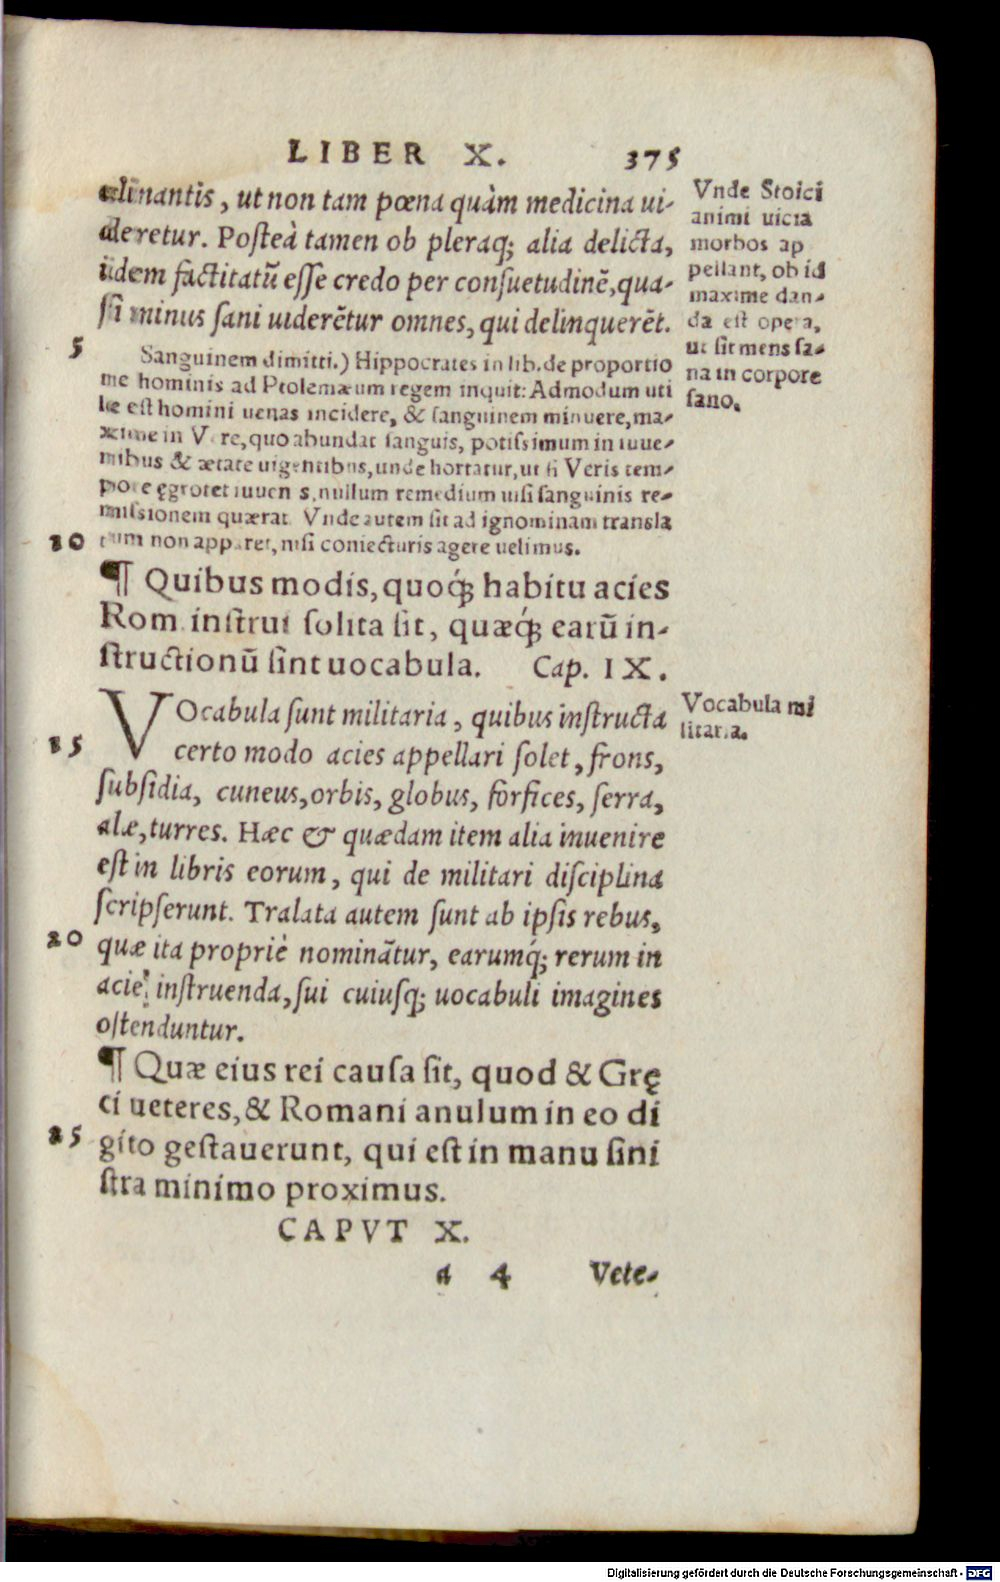 LIBER X. 375
clinantis, ut non tam pœna quàm medicina ui-
deretur. Posteà tamen ob pleraq; alia delicta,
idem factitatũ esse credo per consuetudinẽ, qua-
si minus sani uiderẽtur omnes, qui delinquerẽt.
Vnde Stoici
animi uicia
morbos ap
pellant, ob id
maxime dan-
da est opera,
ut sit mens sa-
na in corpore
sano.
5
Sanguinem dimitti.) Hippocrates in lib. de proportio
ne hominis ad Ptolemæum regem inquit: Admodum uti
le est homini uenas incidere, & sanguinem minuere, ma-
xime in Vere, quo abundat sanguis, potissimum in iuue-
nibus & ætate uigentibus, unde hortatur, ut si Veris tem-
pore ęgrotet iuuenis, nullum remedium nisi sanguinis re-
missionem quærat. Vnde autem sit ad ignominam transla
10 tum non apparet, nisi coniecturis agere uelimus.
¶ Quibus modis, quoq́; habitu acies
Rom. instrui solita sit, quæq́; earũ in-
structionũ sint uocabula. Cap. IX.
VOcabula sunt militaria, quibus instructa
15 certo modo acies appellari solet, frons,
subsidia, cuneus, orbis, globus, forfices, serra,
alæ, turres. Hæc & quædam item alia inuenire
est in libris eorum, qui de militari disciplina
scripserunt. Tralata autem sunt ab ipsis rebus,
20 quæ ita propriè nominãtur, earumq́; rerum in
acie instruenda, sui cuiusq; uocabuli imagines
ostenduntur.
Vocabula mi
litaria.
¶ Quæ eius rei causa sit, quod & Grę
ci ueteres, & Romani anulum in eo di
25 gito gestauerunt, qui est in manu sini
stra minimo proximus.
CAPVT X.
a 4 Vete-
Digitalisierung gefördert durch die Deutsche Forschungsgemeinschaft - DFG